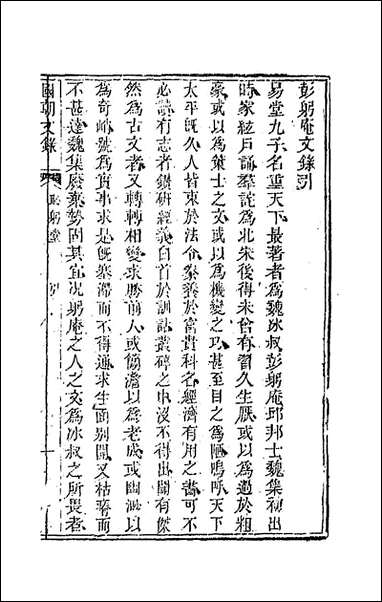 彭躬庵文錄引
易堂九子名重天下最著者為魏冰叔彭躬庵邱邦士魏集初出
時家絃戶誦羣詫為北宋後得未曾有習久生厭或以為過於粗
豪或以為策士之文或以為機變之巧甚至目之為陋嗚呼天下
太平既久人皆束於法令豢養於富貴科名經濟有用之書可不
必讀有志者鑽研經義白首於訓詁叢碎之中沒不得出間有傑
然為古文者又轉轉相變求勝前人或餙澹以為老成或幽澀以
為奇峭號為質事求是既滯而不得通求生面別開又枯瘠而
不甚達魏集廢棄勢固其宜况躬庵之人之文為冰叔之所畏者
國朝文錄
恥躬堂
序
一